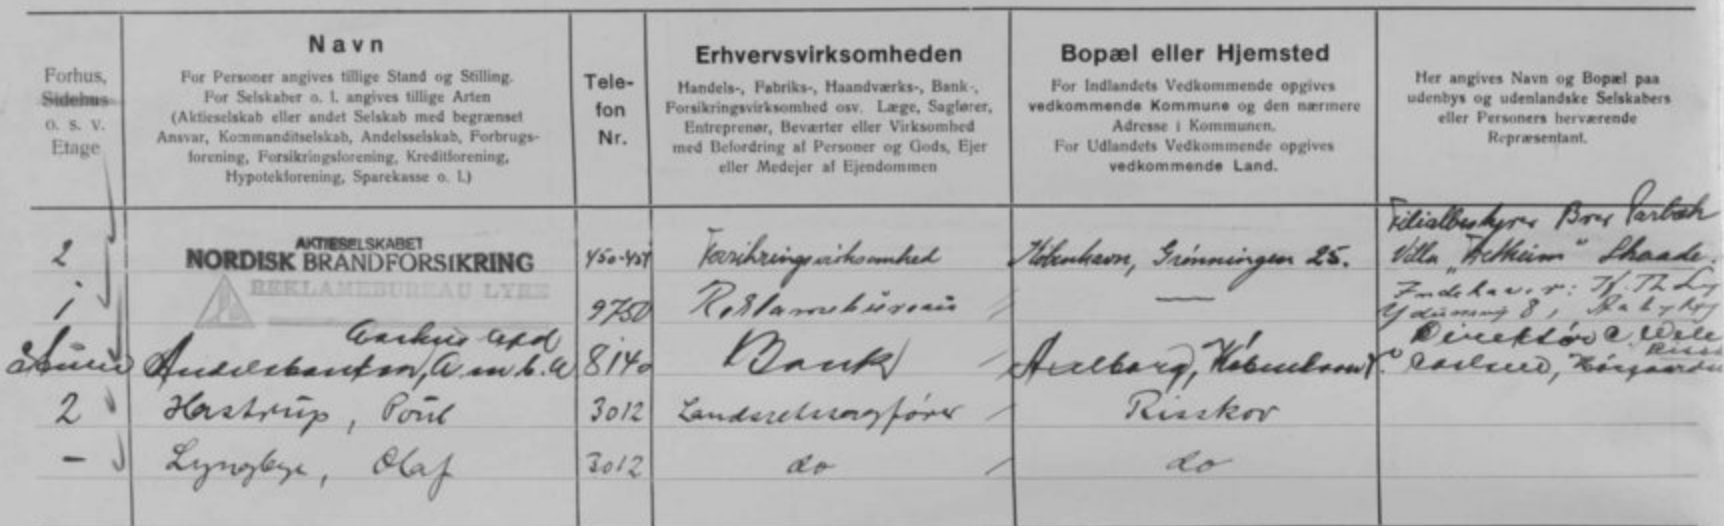 Forhus,
Sidehus
o. s. v.
Etage
Navn
For Personer angives tillige Stand og Stilling.
For Selskaber o. l. angives tillige Arten
(Aktieselskab eller andet Selskab med begrænset
Ansvar, Kommanditselskab, Andelsselskab, Forbrugs-
forening, Forsikringsforening, Kreditforening,
Hypotekforening, Sparekasse o. l.)
Tele-
fon
Nr.
Erhvervsvirksomheden
Handels-, Fabriks-, Haandværks-, Bank-,
Forsikringsvirksomhed osv. Læge, Sagfører,
Entreprenør, Beværter eller Virksomhed
med Befordring af Personer og Gods, Ejer
eller Medejer af Ejendommen
Bopæl eller Hjemsted
For Indlandets Vedkommende opgives
vedkommende Kommune og den nærmere
Adresse i Kommunen.
For Udlandets Vedkommende opgives
vedkommende Land.
Her angives Navn og Bopæl paa
udenbys og udenlandske Selskabers
eller Personers herværende
Repræsentant.
2
AKTIESELSKABET
NORDISK BRANDFORSIKRING
450-451
Forsikringsvirksomhed
København, Grønningen 25.
Filialbestyrer
Villa Skaade.
1
REKLAMEBUREAU LYRE
9750
Reklamebureau
—
Indehaver: Th.
8, Aabyhøj
Stuen
Aarhus Afd
Andelsbanken, A. m. b. A
8140
Bank
Axelborg, København V.
Direktør C.
2
Hastrup, Poul
3012
Landsretssagfører
Risskov
-
Lyngbye, Olaf
3012
do
do